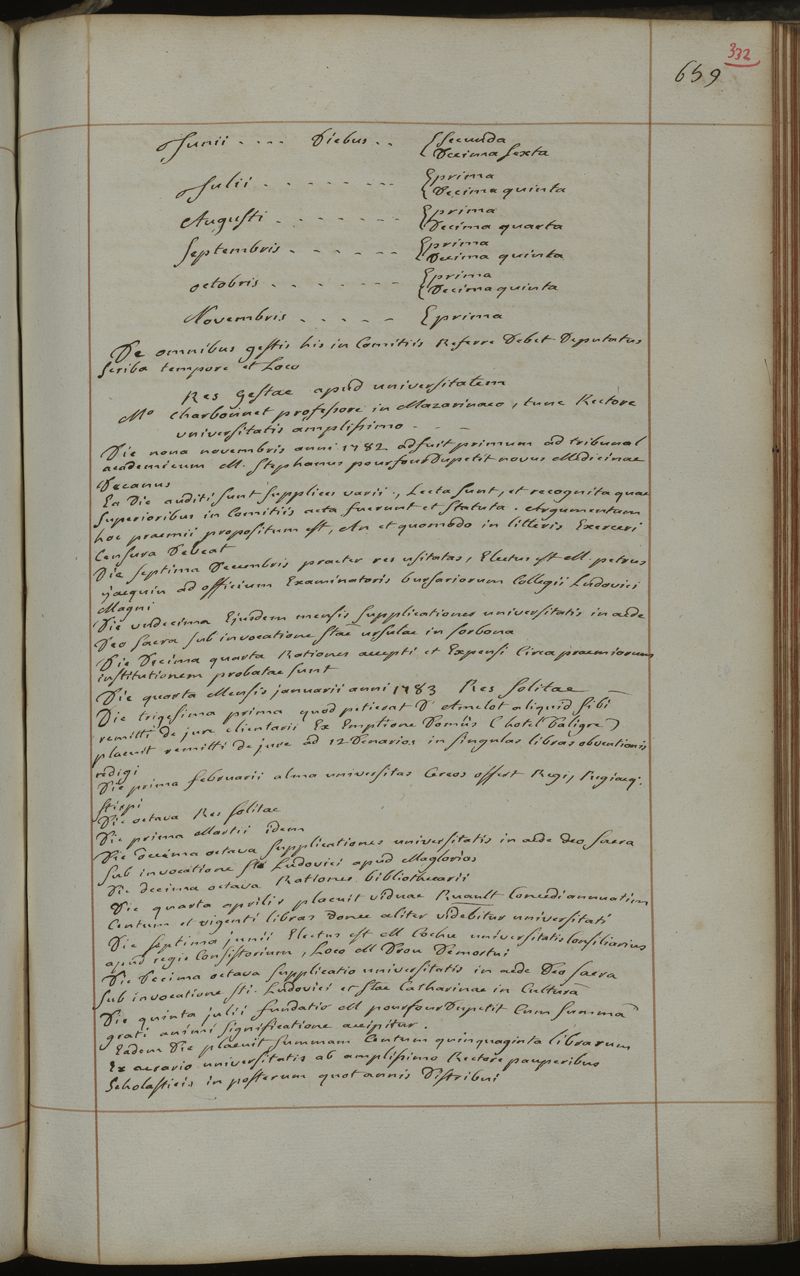 332
659
Junii .... Diebus .. { Secunda
Decima Sexta
Julii . . . . . . . . { prima
Decima quinta
Augusti . . . . . . . { prima
Decima quarta
Septembris . . . . . . { prima
Decima quinta
octobris . . . . . . . { prima
Decima quinta
Novembris . . . . . { prima
De omnibus gestis his in Comitiis Referre Debet Deputatus
Scriba tempore et Loco
Res Gestae apud universitatem
Mo Charbonnet professore in Mazarinaeo, tunc Rectore
universitatis amplissimo . - -
Die nona novembris anni 1782 adfuit primum ad tribunal
academicum M. Stephanus pourfourDupetit novus Medicinae
Decanus
Ea Die auditi sunt Supplices varii, Lecta sunt, et recognita quae
Superioribus in Comitiis acta fuerunt et Statuta. Argumentum
hoc praemii propositum est, An et quomodo in litteris Exerceri
Censura Debeat
Die septima Decembris praeter res usitatas, Electus est M. petrus
yjacquin ad officium Examinatoris bursariorum Collegii Ludovici
Magni
Die undecima Ejusdem mensis Supplicationes universitatis in aede
Deo Sacra sub invocatione Stae ursulae in sorbona
Die Decima quarta Rationes accepti et Expensi Circa praemiorum
institutionem probatae sunt
Die quarta Mensis januarii anni 1783 Res Solitae
Die trigesima prima quod petierat D. Amelot aliquid sibi
remitti de jure clientaris Ex Emptione Domûs (hotel Daligre)
placuit remitti de jure ad 12 Denarios in singulas libras obventionis
redigi
Die prima februarii alma universitas Cereos offert Regi, Regiaeq.
stirpi
Die octava Res solitae
Die prima Martii idem
Die Decima octava Supplicationes universitatis in aede Deo sacra
Sub invocatione Sti Ludovici apud Maglorios
Die decima octava Rationes bibliothecarii
Die quarta aprilis placuit viduae Ruault Concedi annuatim
Centum et viginti libras Donec aliter videbitur universitati
Die septima junii Electus est M Cochu universitatis Consiliarius
apud regis Consistorium, Loco M Drou Demortui
Die Decima octava Supplicatio universitatis in aede Deo sacra
Sub invocatione Sti. Ludovici et Stae Catharinae in Culturâ
Die quinta julii fundatio M pourfourDupetit Cum summâ
grati animi significatione accipitur.
Eadem Die placuit Summam Centum quinquaginta librarum
Ex aerario universitatis ab amplissimo Rectore pauperibus
Scholasticis in posterum quotannis Distribui